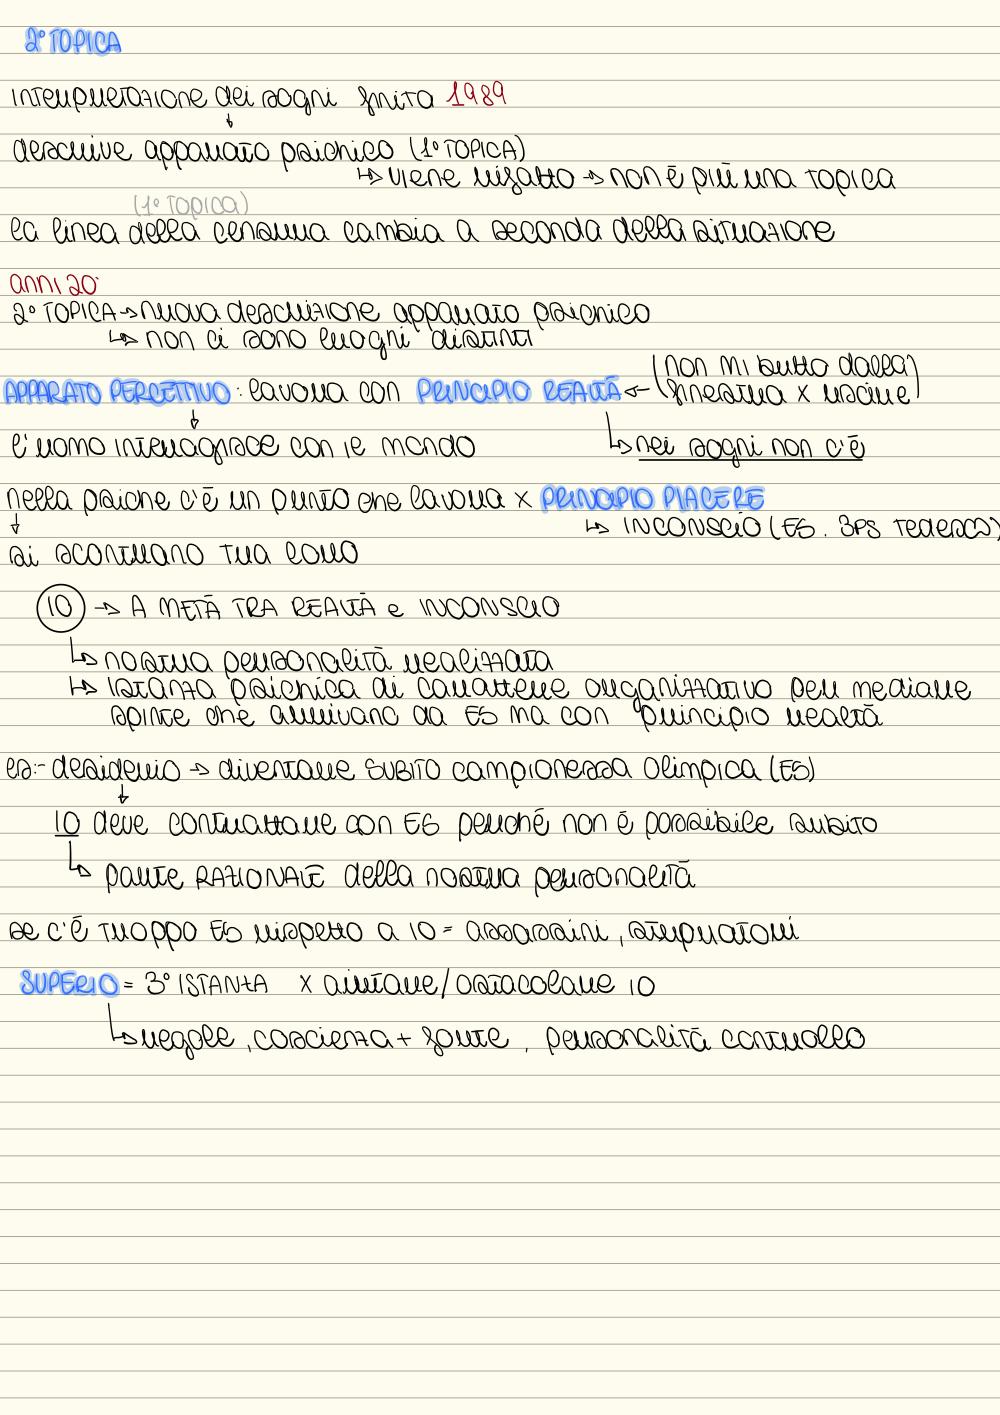 2° TOPICA
interpretazione dei sogni finita 1989
↓
descrive apparato psichico (1° TOPICA)
↳ viene rifatto → non è più una topica
(1° TOPICA)
la linea della censura cambia a seconda della situazione
anni 20:
2° TOPICA → nuova descrizione apparato psichico
↳ non ci sono luoghi distinti
(non mi butto dalla
APPARATO PERCETTIVO: lavora con PRINCIPIO REALTÀ ← finestra x uscire)
↓
l'uomo interagisce con il mondo
↳ nei sogni non c'è
nella psiche c'è un punto che lavora x PRINCIPIO PIACERE
↓
↳ INCONSCIO (ES. 3PS Tedesco)
si scontrano tra loro
IO → A METÀ TRA REALTÀ e INCONSCIO
↳ nostra personalità realizzata
↳ istanza psichica di carattere organizzativo per mediare
spinte che arrivano da ES ma con principio realtà
es:- desiderio → diventare SUBITO campionessa Olimpica (ES)
↓
IO deve contrattare con ES perché non è possibile subito
↳ parte RAZIONALE della nostra personalità
se c'è troppo ES rispetto a IO = assassini, stupratori
SUPERIO = 3° ISTANZA x aiutare/ostacolare IO
↳ regole, coscienza + forte, personalità controllo